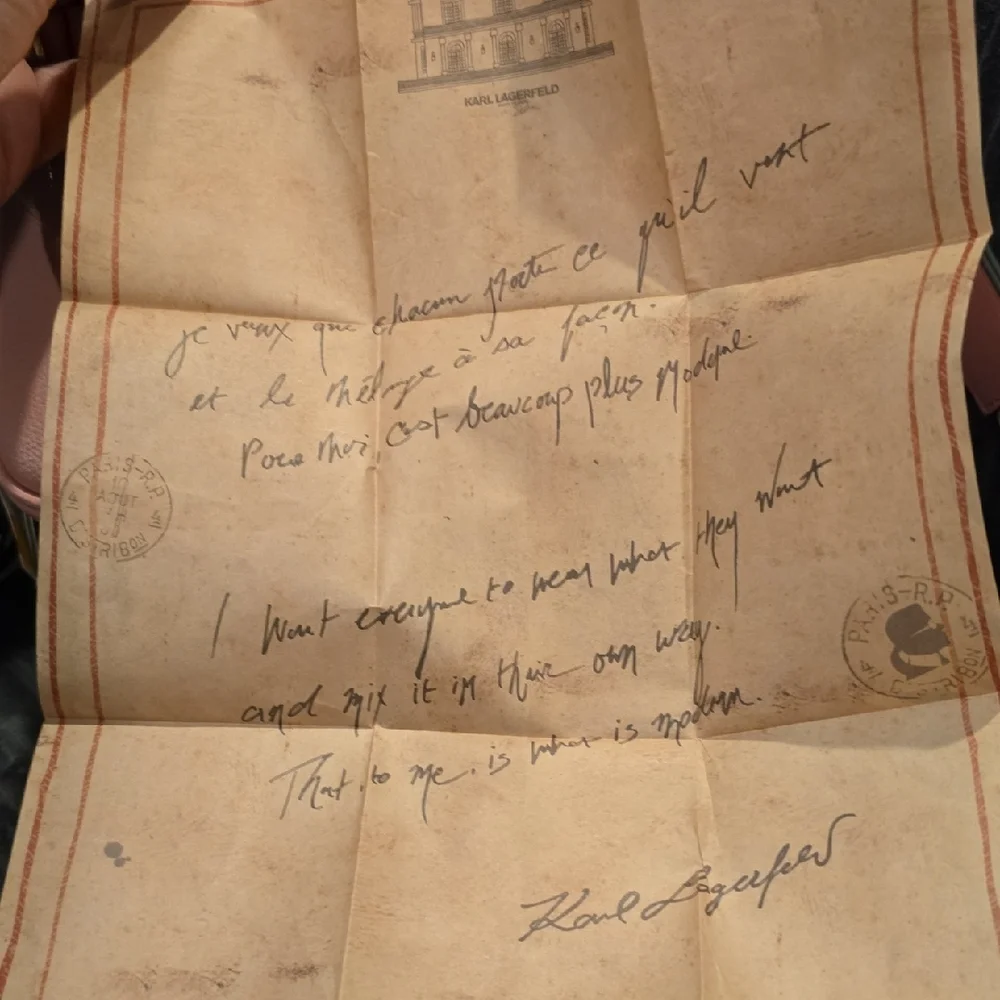 KARL LAGERFELD
je veux que chacun porte ce qu'il veut
et le mélange à sa façon.
Pour moi, c'est beaucoup plus moderne.
PARIS-R.P.
AOUT
PARIS-R.P.
I want everyone to wear what they want
and mix it in their own way.
That, to me, is what is modern.
Karl Lagerfeld